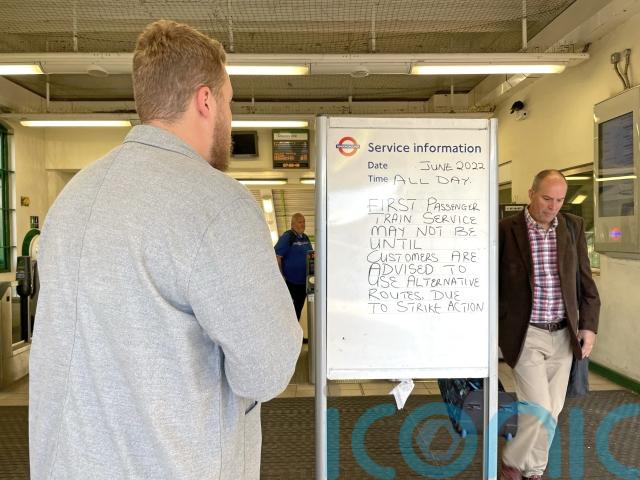 Service information
Date JUNE 2022
Time ALL DAY.
FIRST PASSENGER
TRAIN SERVICE
MAY NOT BE
UNTIL
CUSTOMERS ARE
ADVISED TO
USE ALTERNATIVE
ROUTES, DUE
TO STRIKE ACTION
ICONIC